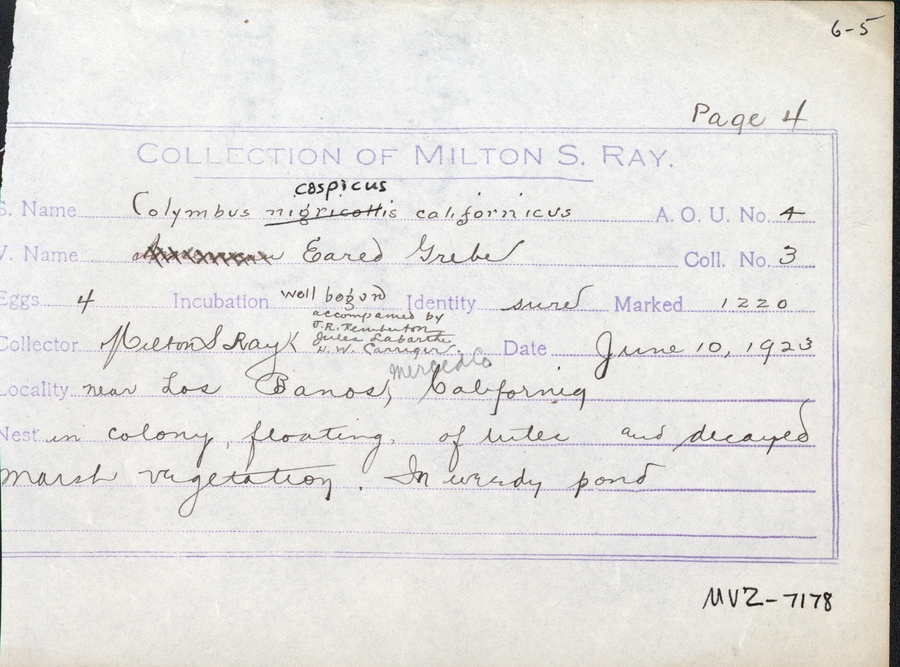 6-5
Page 4
COLLECTION OF MILTON S. RAY.
caspicus
S. Name Colymbus nigricollis californicus A. O. U. No. 4
V. Name American Eared Grebe Coll. No. 3
Eggs 4 Incubation well begun Identity sure Marked 1220
accompanied by
J.R. Pemberton
Jules Labarthe
H. W. Carriger.
Collector Milton S Ray Date June 10, 1923
Merced Co
Locality near Los Banos, California
Nest in colony, floating, of tules and decayed
marsh vegetation. In weedy pond
MVZ-7178